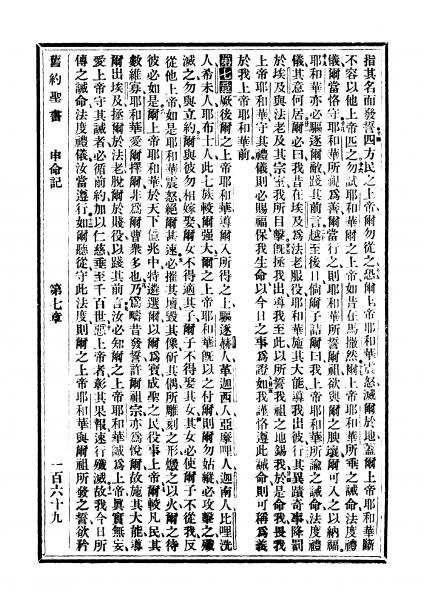 指其名而發誓四方民之上帝爾勿從之恐爾上帝耶和華震怒滅爾於地蓋爾上帝耶和華斷
不容以他上帝匹之勿試耶和華爾之上帝如昔在馬撒然爾上帝耶和華所垂之誡命法度禮
儀爾當恪守耶和華所視爲善爾當行之則耶和華所誓爾祖欲與爾之腴壤爾可入之以納福
耶和華亦必驅逐爾敵踐其前言越至後日倘爾子詰爾曰我上帝耶和華所諭之誡命法度禮
儀其意何居爾必曰我昔在埃及爲法老服役耶和華施其大能導我出彼行其異蹟奇事降罰
於埃及與法老及其宗室我所目擊既拯我出導我至此以所誓我祖之地錫我於是命我畏我
上帝耶和華守其禮儀則必賜福保我生命以今日之事爲證如我謹恪遵此誡命則可稱爲義
於我上帝耶和華前
第七章厥後爾之上帝耶和華導爾入所得之土驅逐赫人革迦西人亞摩哩人迦南人比哩洗
人希未人耶布士人此七族較爾龐大爾之上帝耶和華既以之付爾則爾勿姑縱必攻擊之殲
滅之勿與立約爾與彼勿相嫁娶爾女不得適其子爾子不得娶其女其女必使爾子不從我反
從他上帝如是耶和華震怒絕爾甚速必摧其壇毀其像斫其偶所雕刻之形燬之以火爾之待
彼必如是爾上帝耶和華於天下億兆中特遴選爾以爾爲寶成聖之民役事上帝爾較凡民其
數維寡耶和華愛爾擇爾非爲爾曹衆多也乃爲疇昔發誓許爾祖宗亦爲悅爾故施其大能導
爾出埃及拯爾於法老脫爾於賤役以踐其前言汝必知爾之上帝耶和華誠爲上帝真實無妄
愛上帝守其誡者必循前約加以仁慈垂至千百世惡上帝者彰其果報速行殲滅故我今日所
傳之誡命法度禮儀汝當遵行如爾聽從守此法度則爾之上帝耶和華與爾祖所發之誓欲矜
舊約聖書 申命記 第七章 一百六十九